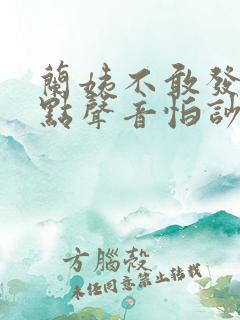 蘭姨不敢發
點聲音怕訬
方腦殼
未經同意禁止轉載